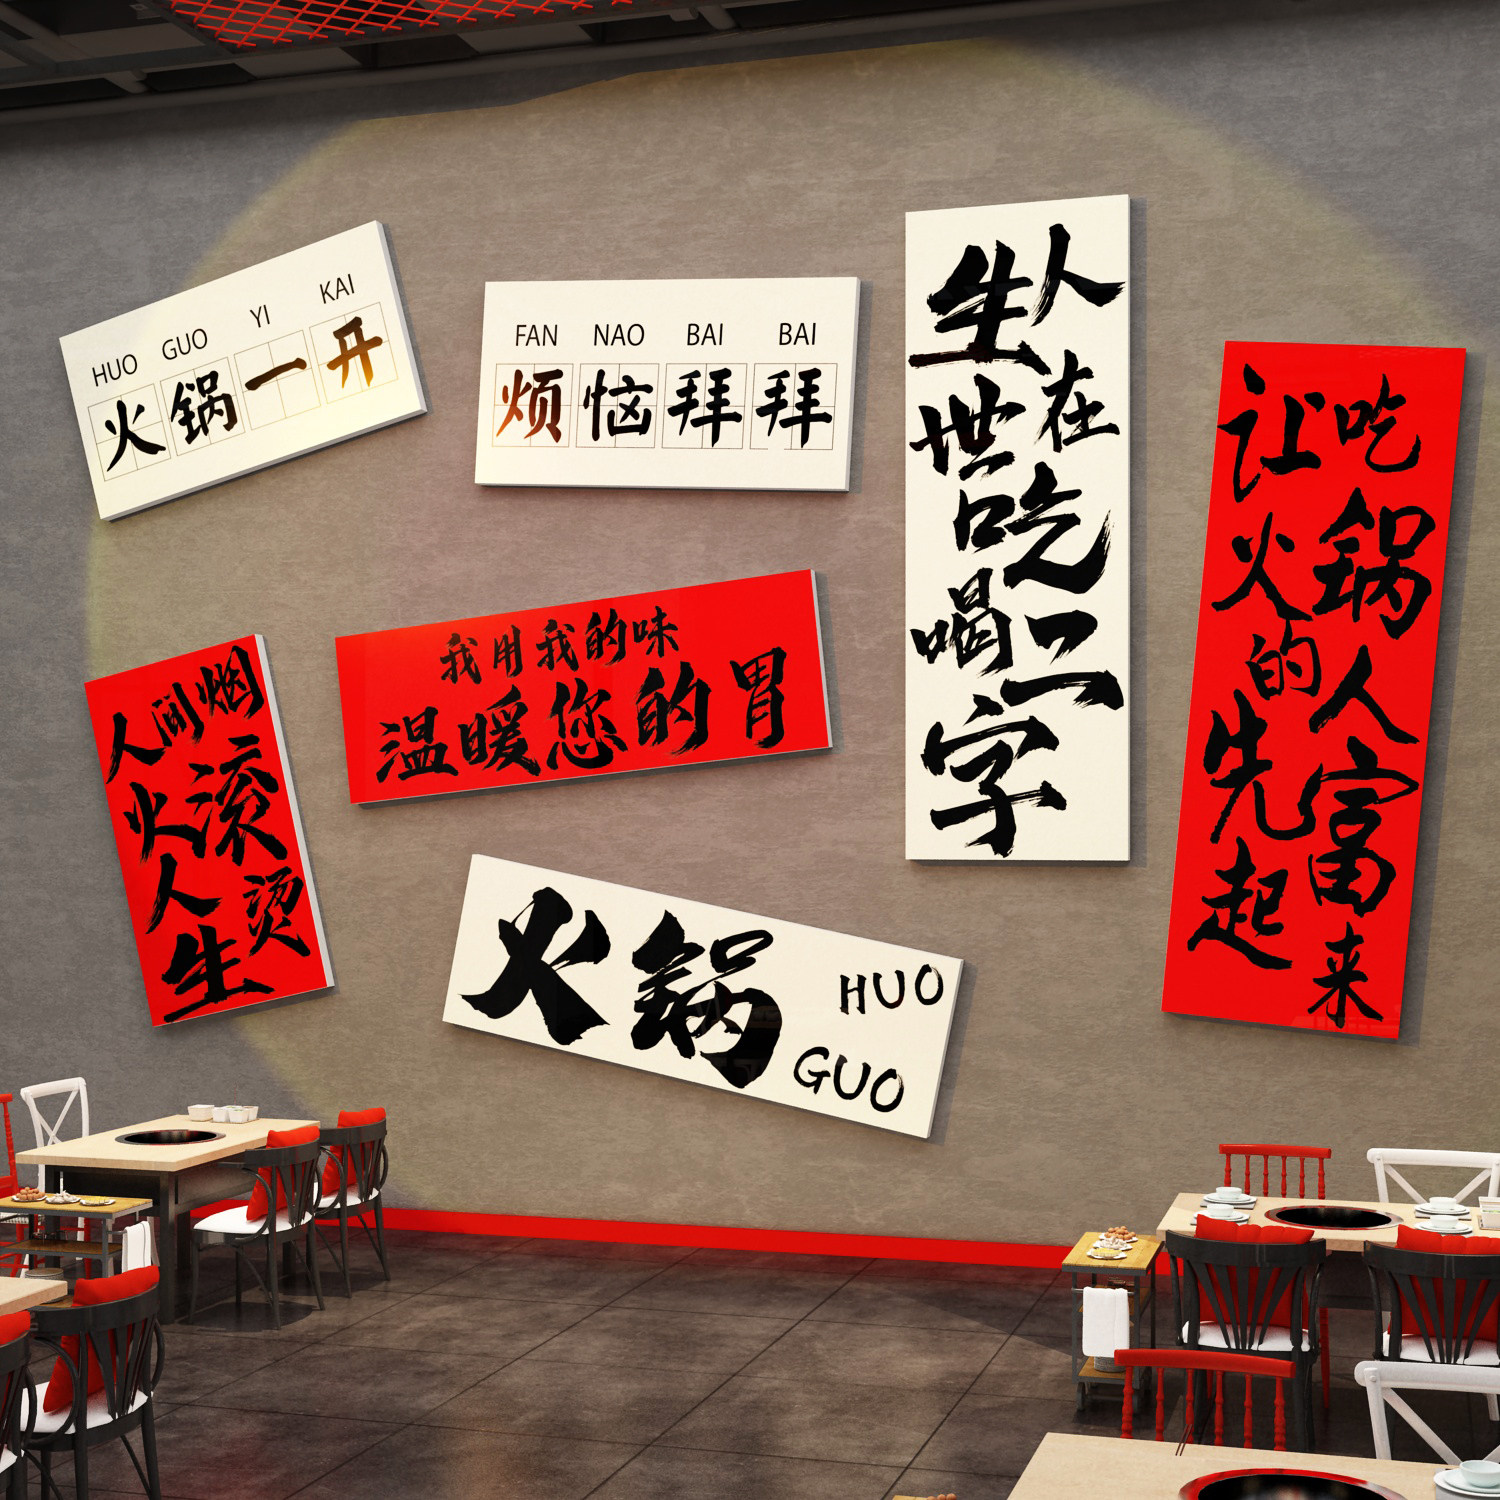 HUO GUO YI KAI
火锅一开
FAN NAO BAI BAI
烦恼拜拜
人生在世吃喝二字
让吃火锅的人先富起来
我用我的味
温暖您的胃
人间烟火
人生滚烫
火锅
HUO
GUO